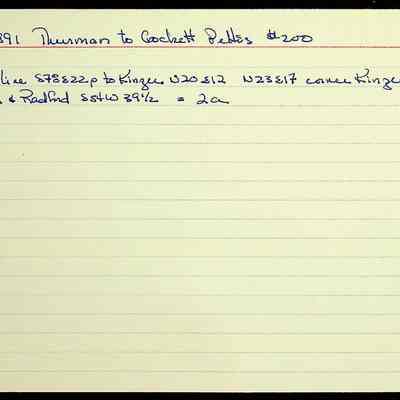 891 Thurman to Crockett Pettis $200
line S78E22p to Kinzer N20E12 N23E17 corner Kinzer
& Redford S54W 39½ = 2a